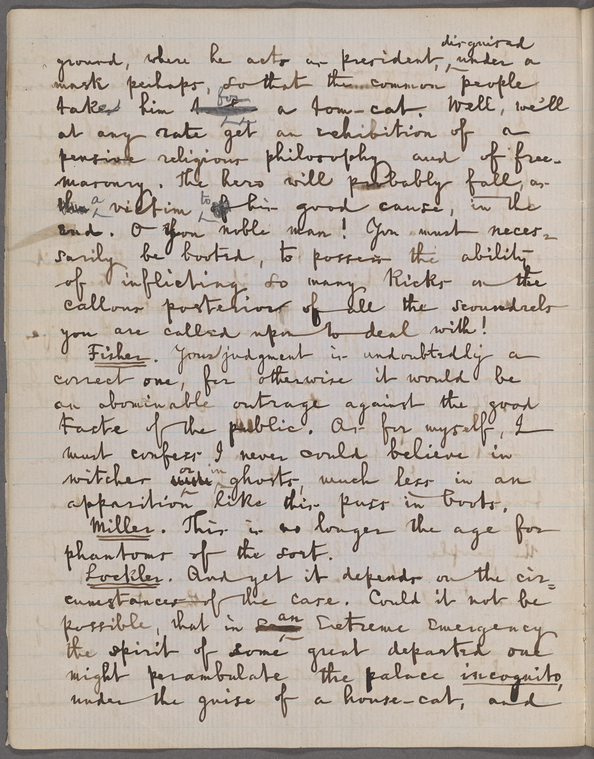 ground, where he acts as president, disguised under a
mask perhaps, so that the common people
takes him for a tom-cat. Well, we'll
at any rate get an exhibition of a
pensive religious philosophy and of free-
masonry. The hero will probably fall, as
a victim to his good cause, in the
end. O thou noble man! You must neces-
sarily be booted, to possess the ability
of inflicting so many kicks on the
callous posterior of all the scoundrels
you are called upon to deal with!
Fisher. Your judgment is undoubtedly a
correct one, for otherwise it would be
an abominable outrage against the good
taste of the public. As for myself, I
must confess I never could believe in
witches or in ghosts, much less in an
apparition like this puss in boots.
Miller. This is no longer the age for
phantoms of the sort.
Lockler. And yet it depends on the cir-
cumstances of the case. Could it not be
possible, that in an extreme emergency
the spirit of some great departed one
might perambulate the palace incognito,
under the guise of a house-cat, and